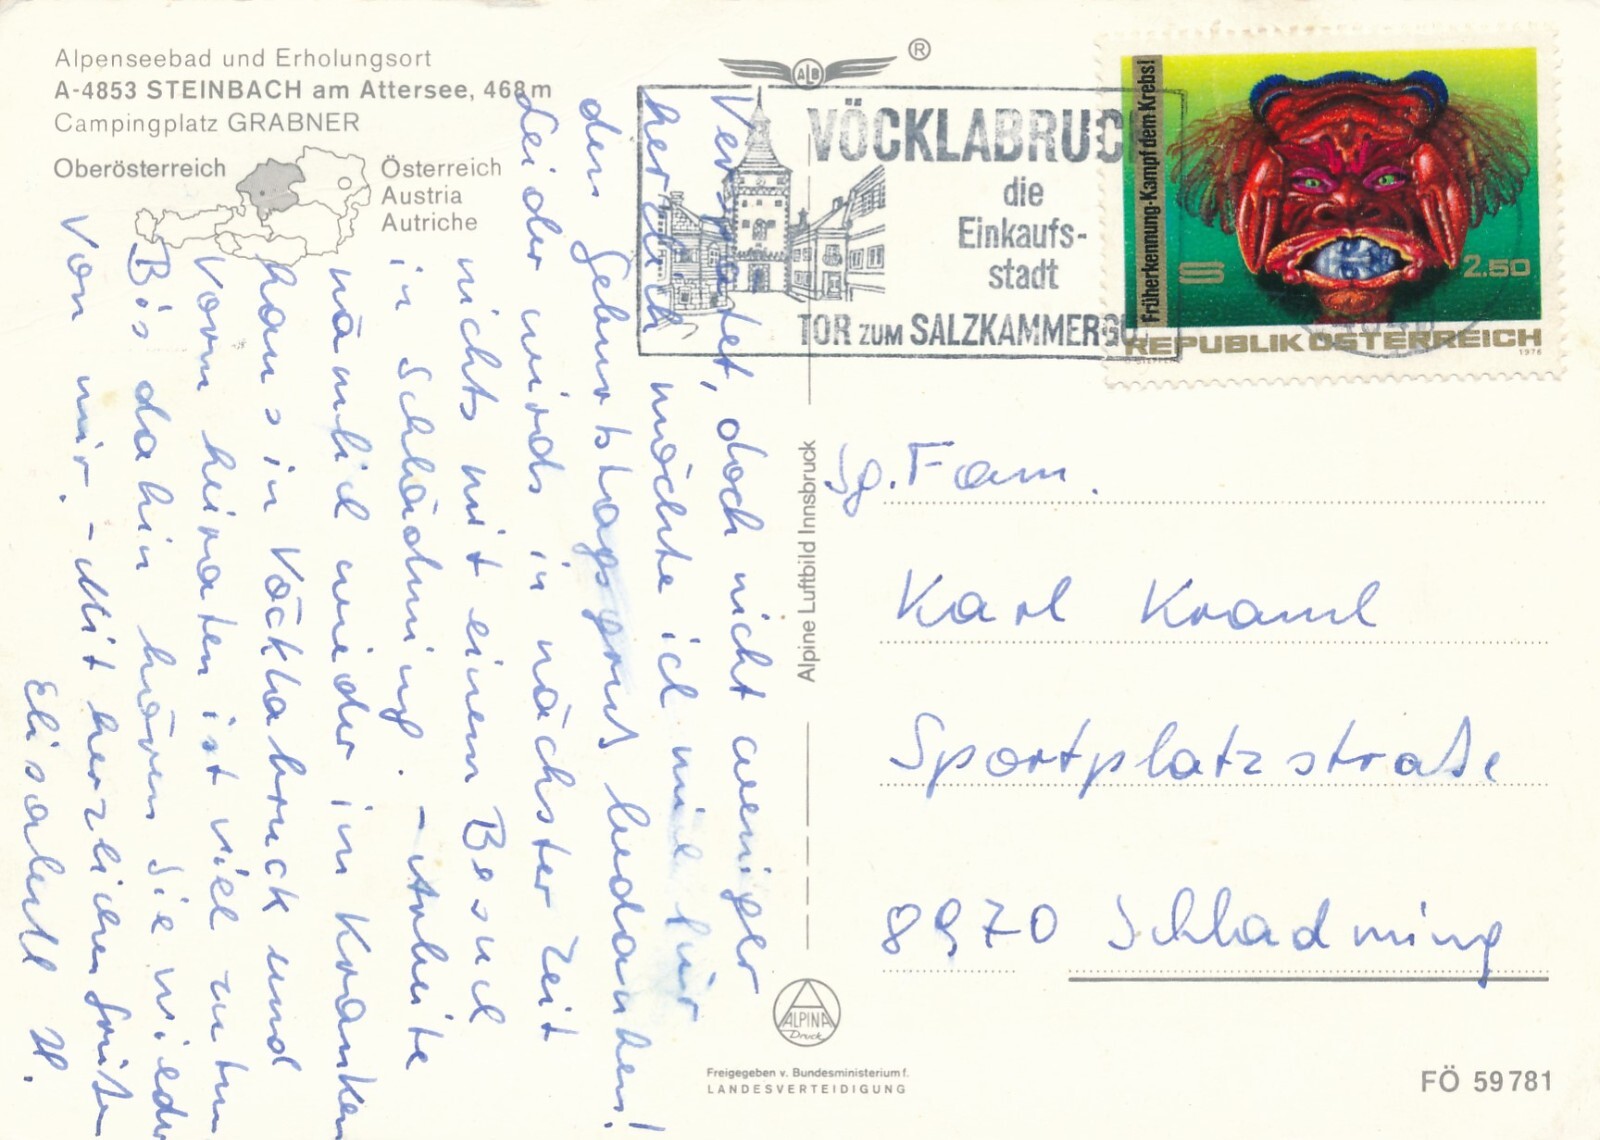 Alpenseebad und Erholungsort
A-4853 STEINBACH am Attersee, 468 m
Campingplatz GRABNER
Oberösterreich
Österreich
Austria
Autriche
ALB
®
VÖCKLABRUCK
die
Einkaufs-
stadt
TOR ZUM SALZKAMMERGU
Früherkennung·Kampf dem Krebs!
S 2.50
REPUBLIK ÖSTERREICH
1976
Verspätet, doch nicht weniger
herzlich möchte ich mich für
den Geburtstagsgruß bedanken!
Leider wirds in nächster Zeit
nichts mit einem Besuch
in Schladming. - Arbeite
nämlich wieder im Kranken
haus in Vöcklabruck und
vorm heiraten ist viel zu tun
Bis dahin hören Sie wieder
von mir. - Mit herzlichen Grüßen
Elisabeth H.
Alpine Luftbild Innsbruck
Sg. Fam.
Karl Kraml
Sportplatzstraße
8970 Schladming
ALPINA
Druck
Freigegeben v. Bundesministerium f.
LANDESVERTEIDIGUNG
FÖ 59781